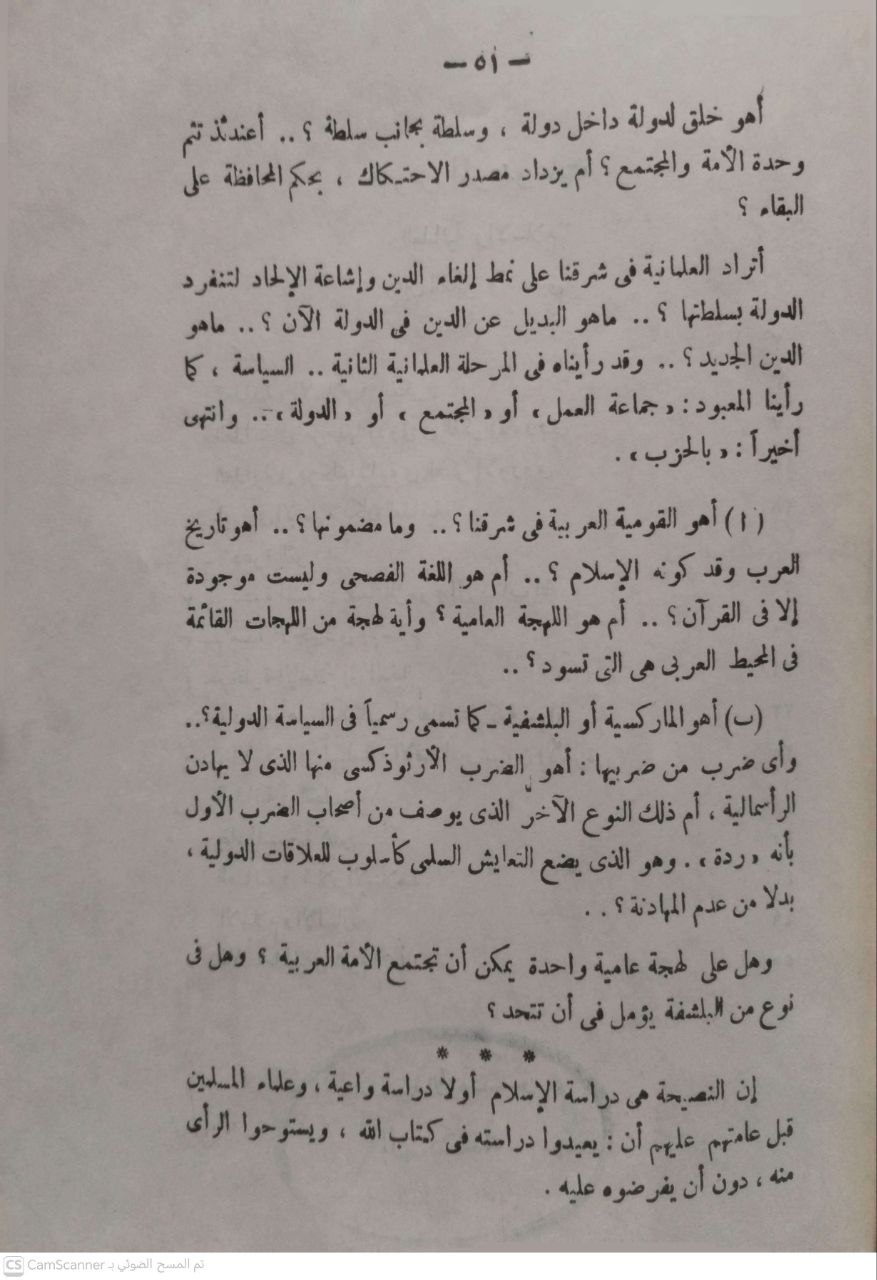 — ٥١ —
أهو خلق لدولة داخل دولة ، وسلطة بجانب سلطة ؟ .. أعندئذ تتم
وحدة الأمة والمجتمع ؟ أم يزداد مصدر الاحتكاك ، بحكم المحافظة على
البقاء ؟
أتراد العلمانية فى شرقنا على نمط إلغاء الدين وإشاعة الإلحاد لتنفرد
الدولة بسلطتها ؟ .. ماهو البديل عن الدين فى الدولة الآن ؟ .. ماهو
الدين الجديد ؟ .. وقد رأيناه فى المرحلة العلمانية الثانية .. السياسة ، كما
رأينا المعبود : «جماعة العمل» أو «المجتمع» أو «الدولة» .. وانتهى
أخيراً : «بالحزب» .
( ا ) أهو القومية العربية فى شرقنا ؟ .. وما مضمونها ؟ .. أهو تاريخ
العرب وقد كونه الإسلام ؟ .. أم هو اللغة الفصحى وليست موجودة
إلا فى القرآن ؟ .. أم هو اللهجة العامية ؟ وأية لهجة من اللهجات القائمة
فى المحيط العربى هى التى تسود ؟ ..
(ب) أهو الماركسية أو البلشفية ـ كما تسمى رسمياً فى السياسة الدولية ؟ ..
وأى ضرب من ضربيها : أهو الضرب الأرثوذكسى منها الذى لا يهادن
الرأسمالية ، أم ذلك النوع الآخر الذى يوصف من أصحاب الضرب الأول
بأنه «ردة» . وهو الذى يضع التعايش السلمى كأسلوب للعلاقات الدولية ،
بدلا من عدم المهادنة ؟ . .
وهل على لهجة عامية واحدة يمكن أن تجتمع الأمة العربية ؟ وهل فى
نوع من البلشفة يؤمل فى أن تتحد ؟
* * *
إن النصيحة هى دراسة الإسلام أولا دراسة واعية ، وعلماء المسلمين
قبل عامتهم عليهم أن : يعيدوا دراسته فى كتاب الله ، ويستوحوا الرأى
منه ، دون أن يفرضوه عليه .
CS CamScanner تم المسح الضوئي بـ